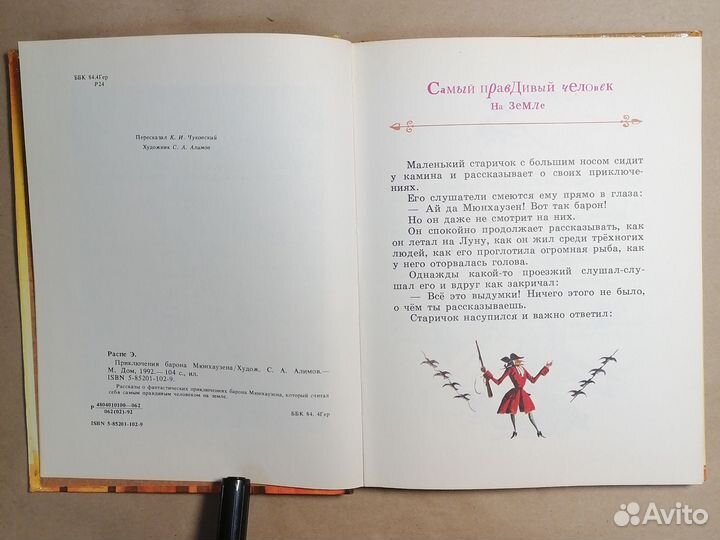 ББК 84.4Гер
Р24
Пересказал К. И. Чуковский
Художник С. А. Алимов
Распе Э.
Приключения барона Мюнхаузена/Худож. С. А. Алимов.—
М. Дом, 1992.— 104 с., ил.
ISBN 5-85201-102-9.
Рассказы о фантастических приключениях барона Мюнхаузена, который считал
себя самым правдивым человеком на земле.
Р 4804010100—062
062(02)-92
ББК 84. 4Гер
ISBN 5-85201-102-9
Самый правДивый человек
На Земле
Маленький старичок с большим носом сидит
у камина и рассказывает о своих приключе-
ниях.
Его слушатели смеются ему прямо в глаза:
— Ай да Мюнхаузен! Вот так барон!
Но он даже не смотрит на них.
Он спокойно продолжает рассказывать, как
он летал на Луну, как он жил среди трёхногих
людей, как его проглотила огромная рыба, как
у него оторвалась голова.
Однажды какой-то проезжий слушал-слу-
шал его и вдруг как закричал:
— Всё это выдумки! Ничего этого не было,
о чём ты рассказываешь.
Старичок насупился и важно ответил:
Avito